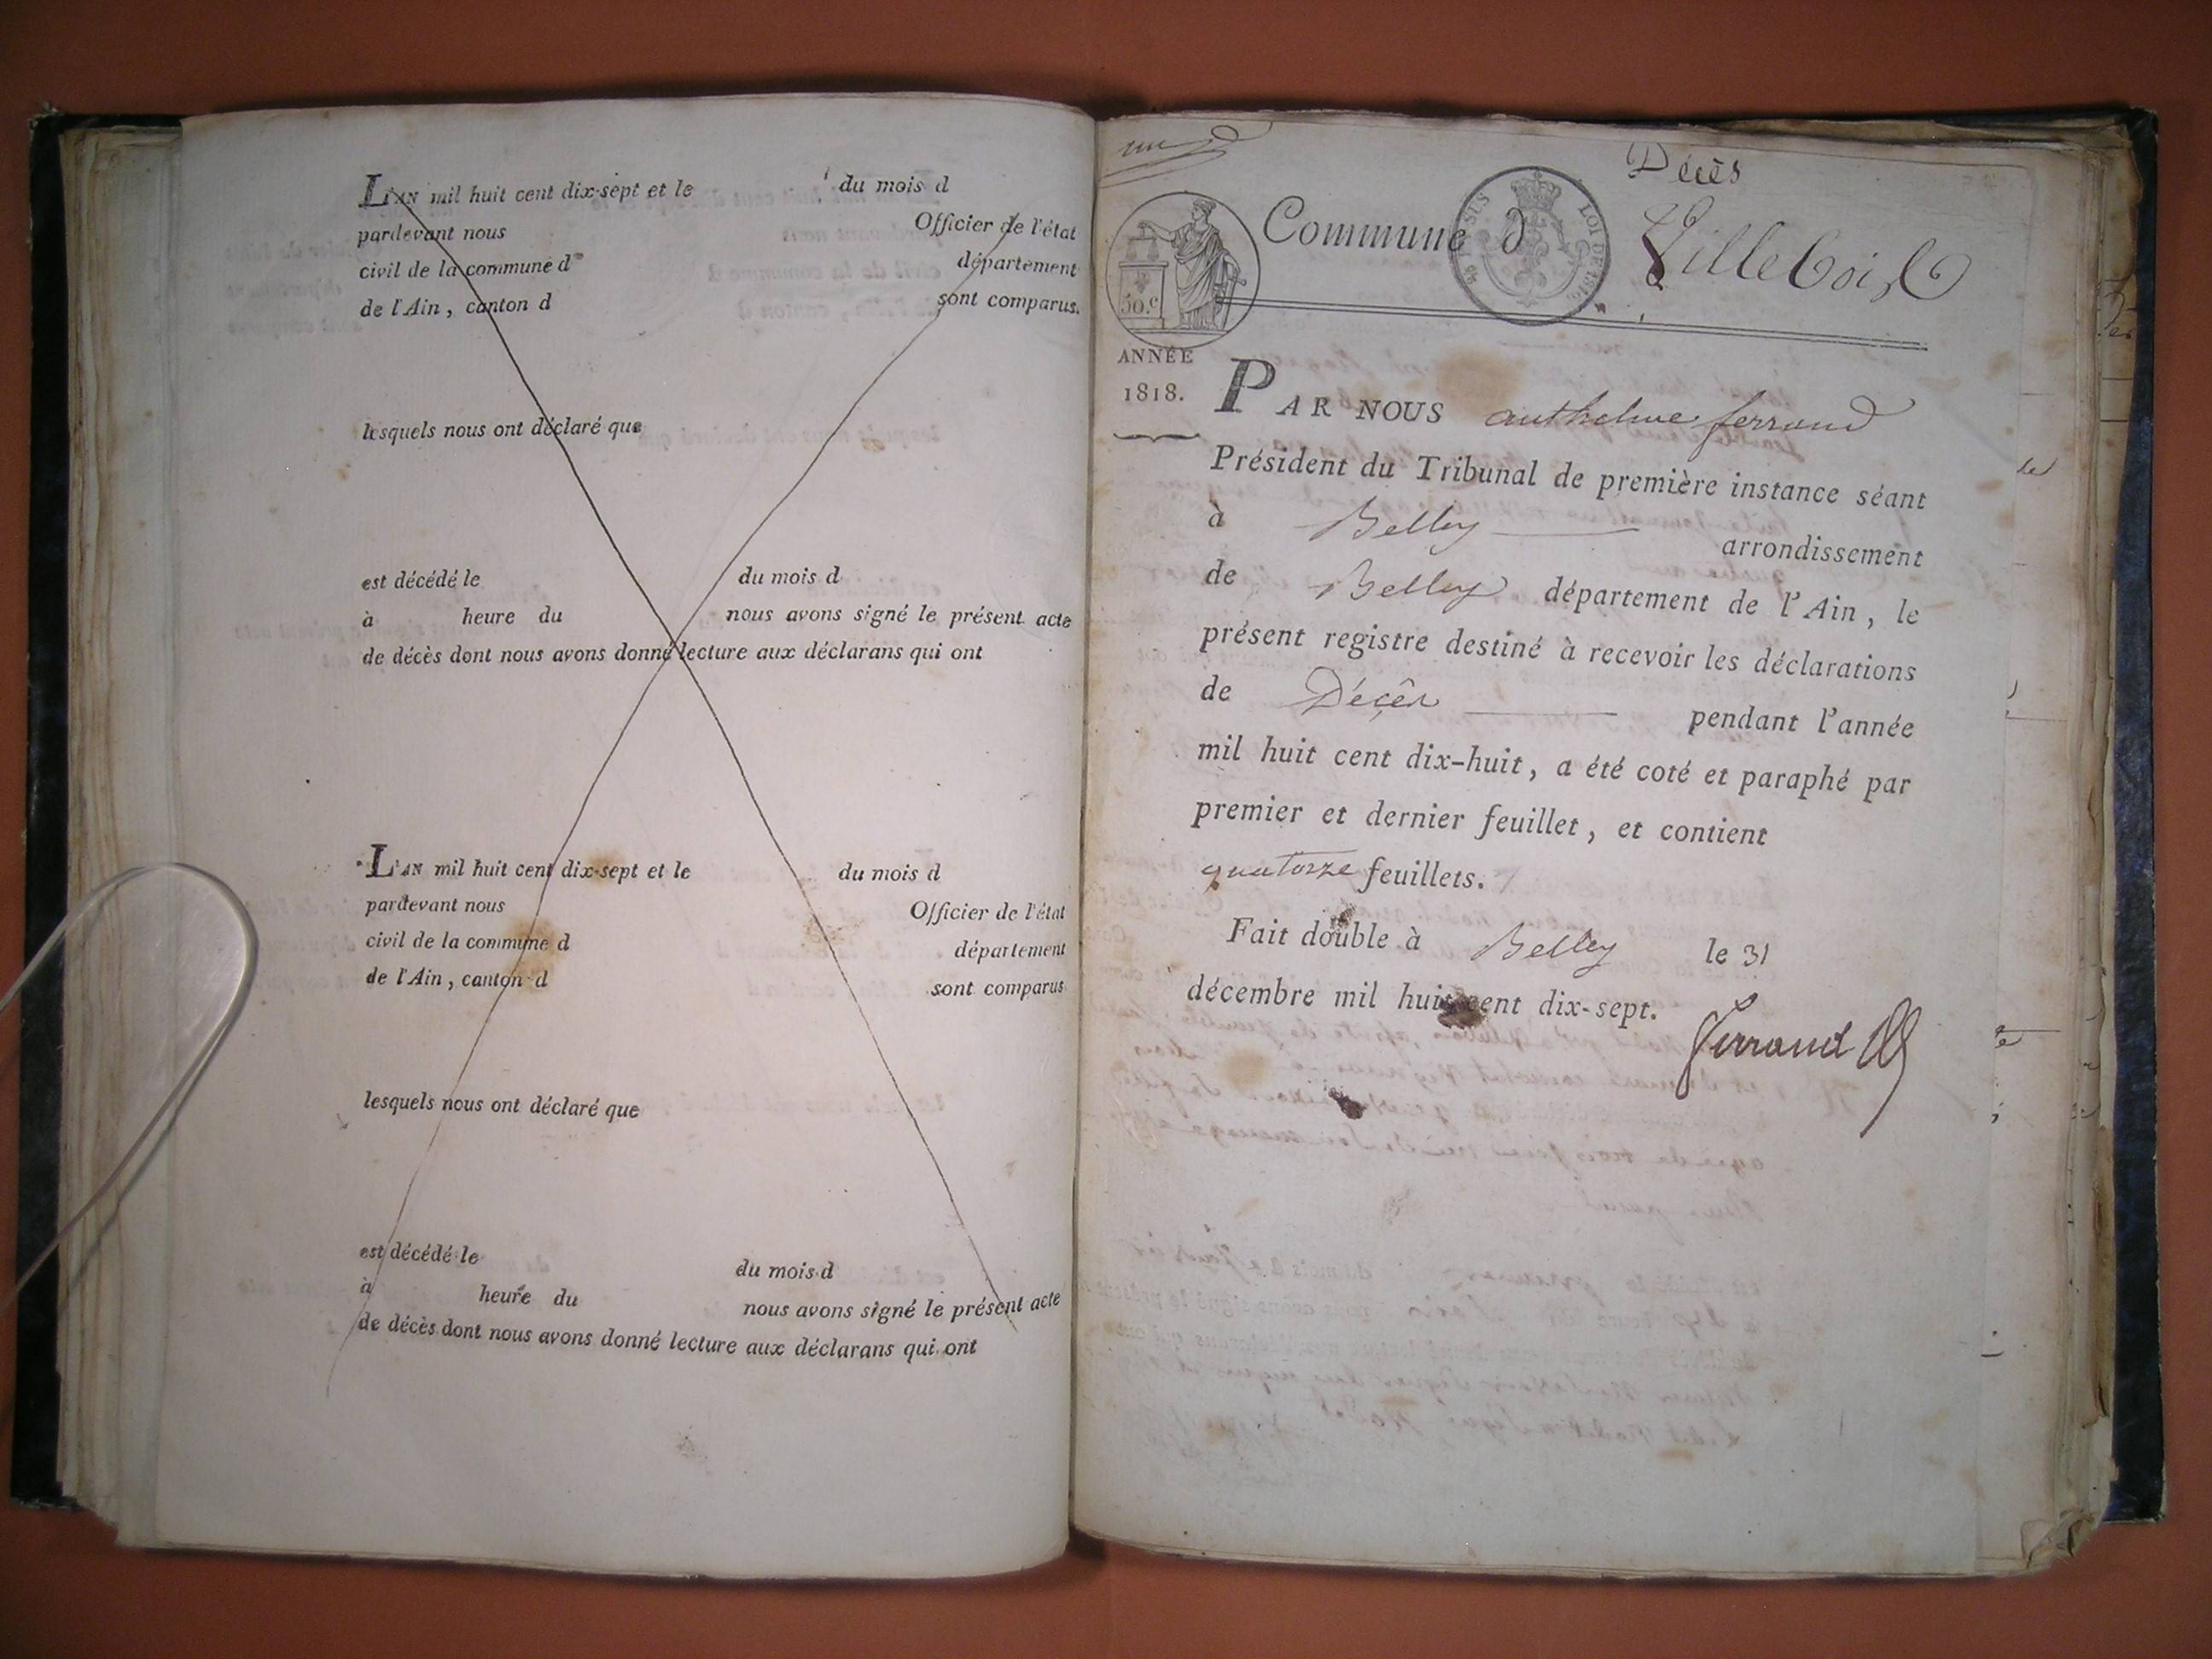 L'AN mil huit cent dix-sept et le du mois d
pardevant nous Officier de l'état
civil de la commune d département
de l'Ain, canton d sont comparus.
lesquels nous ont déclaré que
est décédé le du mois d
à heure du nous avons signé le présent acte
de décès dont nous avons donné lecture aux déclarans qui ont
L'AN mil huit cent dix-sept et le du mois d
pardevant nous Officier de l'état
civil de la commune d département
de l'Ain, canton d sont comparus
lesquels nous ont déclaré que
est décédé le du mois d
à heure du nous avons signé le présent acte
de décès dont nous avons donné lecture aux déclarans qui ont
Décès
Commune d Villebois
EN SUS LOI DE 1816
50.c
ANNÉE
1818.
PAR NOUS anthelme ferrand
Président du Tribunal de première instance séant
à Belley arrondissement
de Belley département de l'Ain, le
présent registre destiné à recevoir les déclarations
de Décès pendant l'année
mil huit cent dix-huit, a été coté et paraphé par
premier et dernier feuillet, et contient
quatorze feuillets.
Fait double à Belley le 31
décembre mil huit cent dix-sept.
ferrand